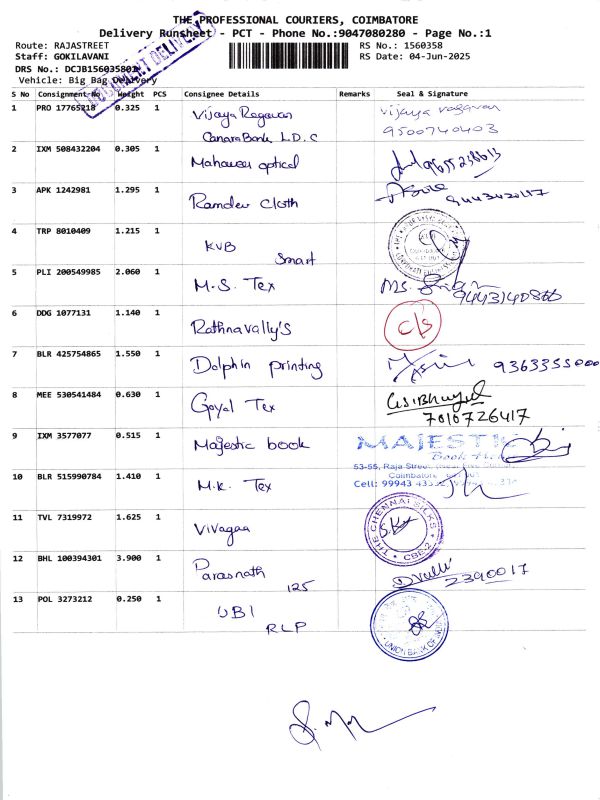 THE PROFESSIONAL COURIERS, COIMBATORE
Delivery Runsheet - PCT - Phone No.:9047080280 - Page No.:1
Route: RAJASTREET
RS No.: 1560358
Staff: GOKILAVANI
RS Date: 04-Jun-2025
DRS No.: DCJB15603580
Vehicle: Big Bag Delivery
DOCUMENT DELIVERY
S No Consignment No Weight PCS Consignee Details Remarks Seal & Signature
1 PRO 17765218 0.325 1 Vijaya Ragavan vijaya ragavan
Canara Bank L.D.C 9500740403
2 IXM 508432204 0.305 1 Mahaveer optical 9655238613
3 APK 1242981 1.295 1 Ramdev Cloth
4 TRP 8010409 1.215 1 KVB
Smart
5 PLI 200549985 2.060 1 M.S. Tex MS.
6 DDG 1077131 1.140 1 Rathnavally's C/S
7 BLR 425754865 1.550 1 Dolphin printing 9363355000
8 MEE 530541484 0.630 1 Goyal Tex
7010726417
9 IXM 3577077 0.515 1 Majestic book MAJESTIC
Book
53-55, Raja Street
Coimbatore
Cell: 99943
10 BLR 515990784 1.410 1 M.K. Tex
11 TVL 7319972 1.625 1 Vivagaa THE CHENNAI SILKS CBE-2
12 BHL 100394301 3.900 1 Parasnath
125 2390017
13 POL 3273212 0.250 1 UBI UNION BANK OF INDIA
RLP